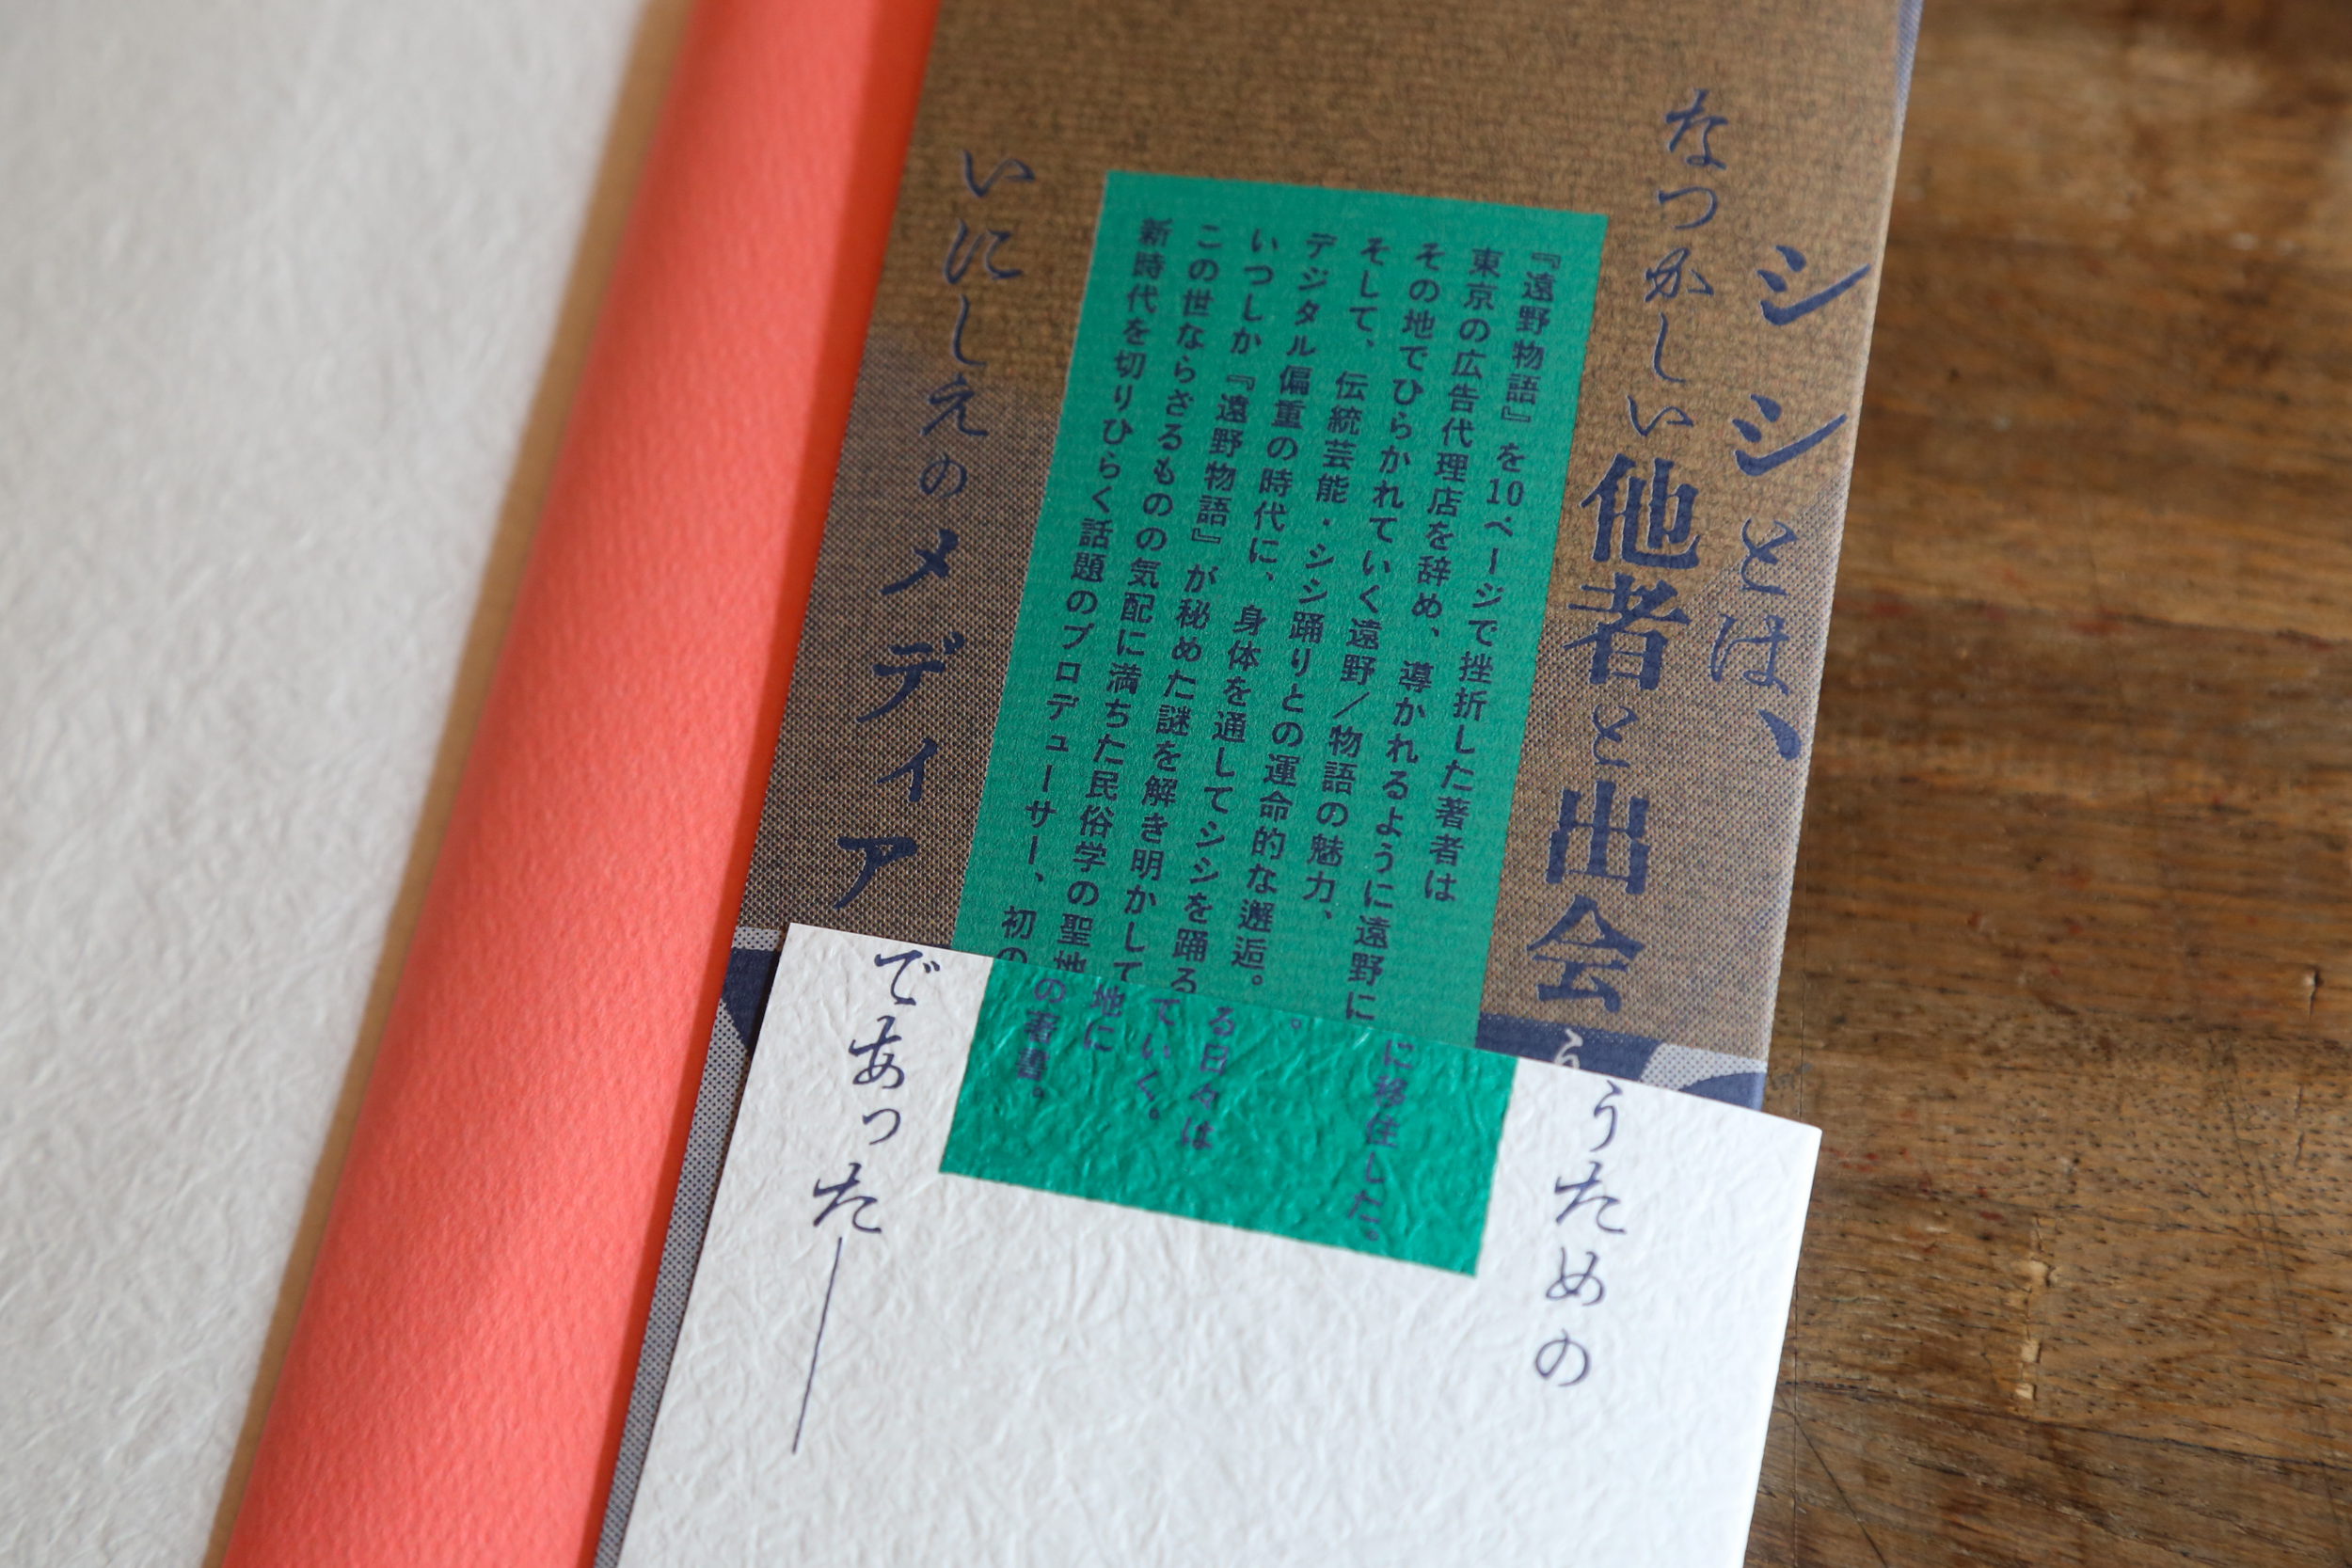 シシとは、
なつかしい他者と出会うための
『遠野物語』を10ページで挫折した著者は
東京の広告代理店を辞め、導かれるように遠野に移住した。
その地でひらかれていく遠野／物語の魅力、
そして、伝統芸能・シシ踊りとの運命的な邂逅。
デジタル偏重の時代に、身体を通してシシを踊る日々は
いつしか『遠野物語』が秘めた謎を解き明かしていく。
この世ならざるものの気配に満ちた民俗学の聖地に
新時代を切りひらく話題のプロデューサー、初の著書。
いにしえのメディアであった―